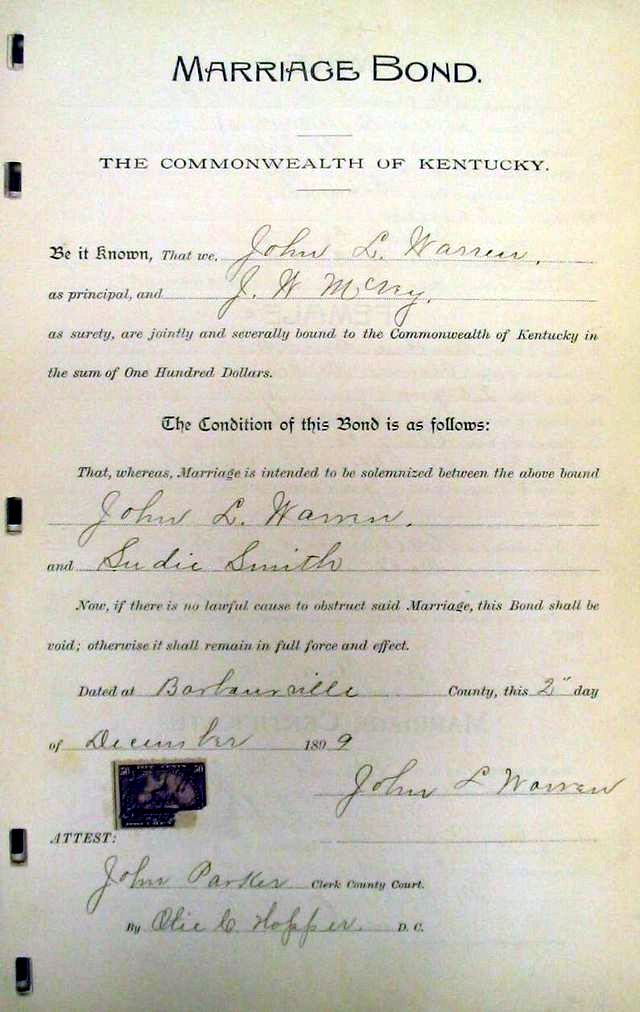 MARRIAGE BOND.
THE COMMONWEALTH OF KENTUCKY.
Be it Known, That we, John L. Warren,
as principal, and J. W McVey,
as surety, are jointly and severally bound to the Commonwealth of Kentucky in
the sum of One Hundred Dollars.
The Condition of this Bond is as follows:
That, whereas, Marriage is intended to be solemnized between the above bound
John L. Warren.
and Sudie Smith
Now, if there is no lawful cause to obstruct said Marriage, this Bond shall be
void; otherwise it shall remain in full force and effect.
Dated at Barbourville County, this 2" day
of December 1899
50 50
John L Warren
ATTEST:
John Parker Clerk County Court.
By Olie C. Hopper D. C.